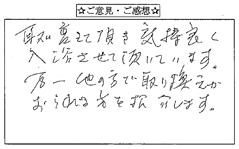 ☆ご意見・ご感想☆
取り替えて頂き気持良く
入浴させて頂いています。
万一他の方で取り換えが
おられる方を紹介します。